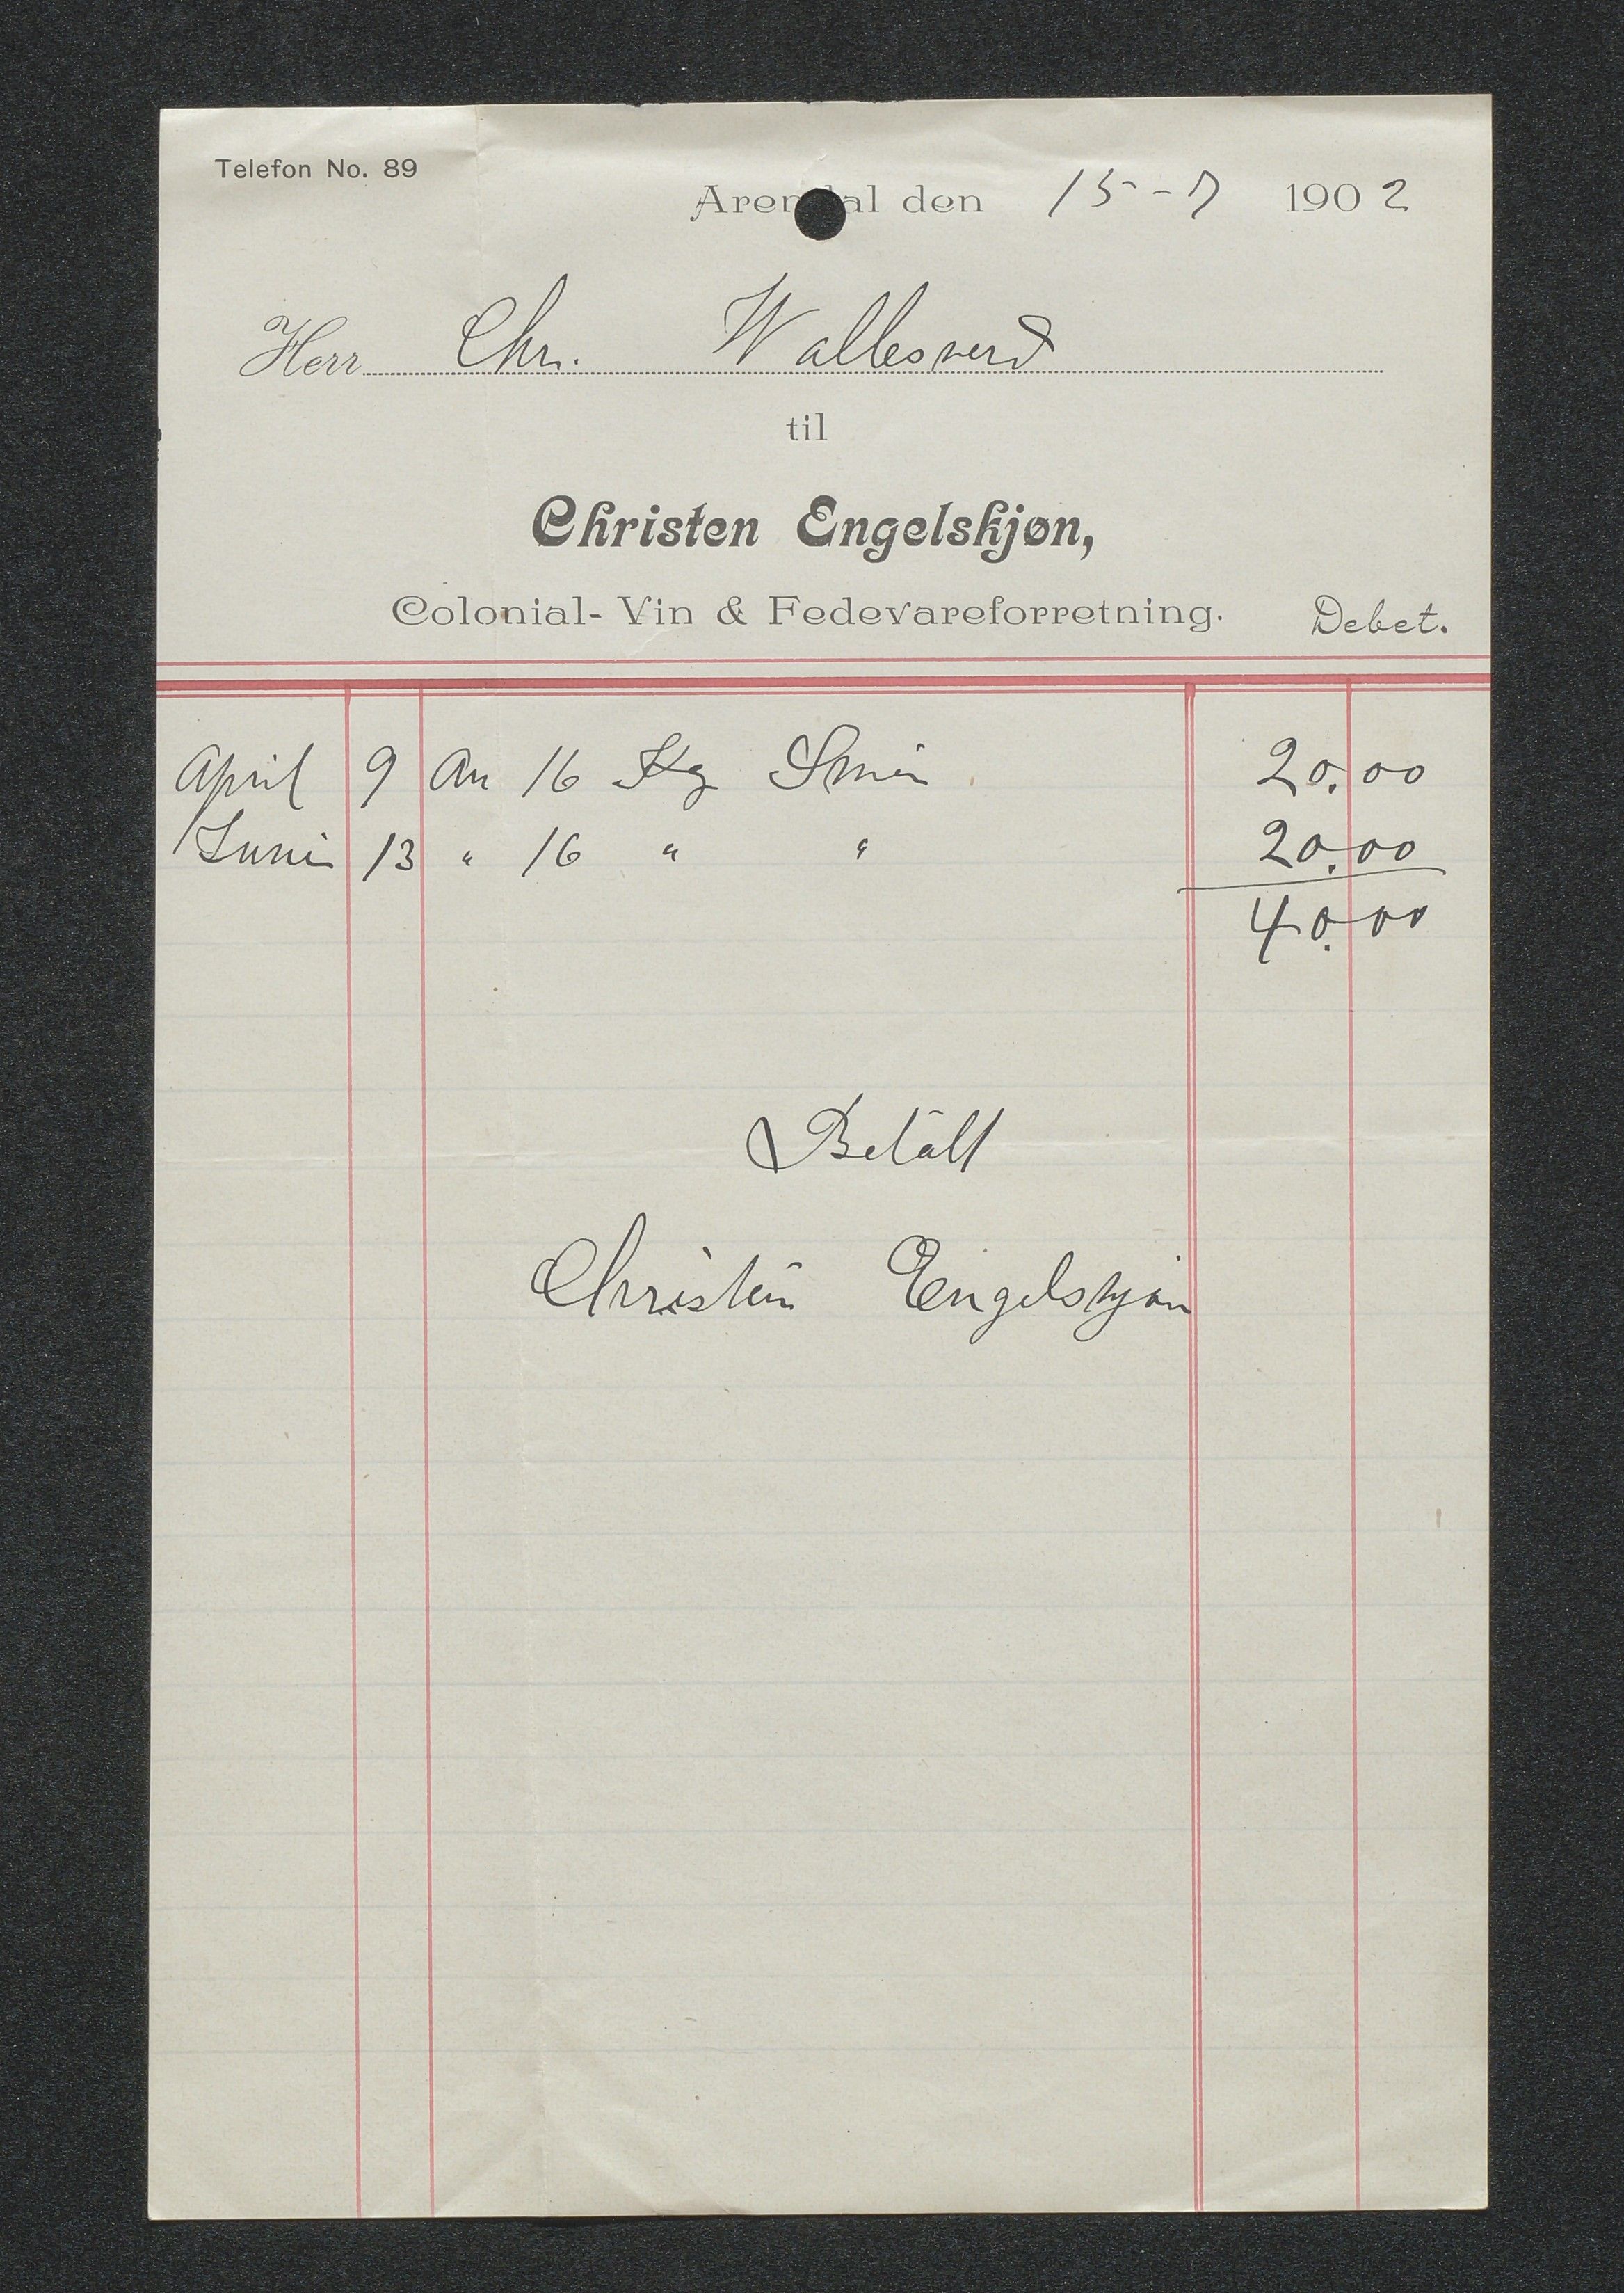 Telefon No. 89
Arendal den 15-7 1902
Herr Chr. Wallesverd
til
Christen Engelskjøn,
Colonial- Vin & Fedevareforretning. Debet.
April 9 An 16 Kg Smør 20.00
Juni 13 " 16 " " 20.00
40.00
Betalt
Christen Engelskjøn